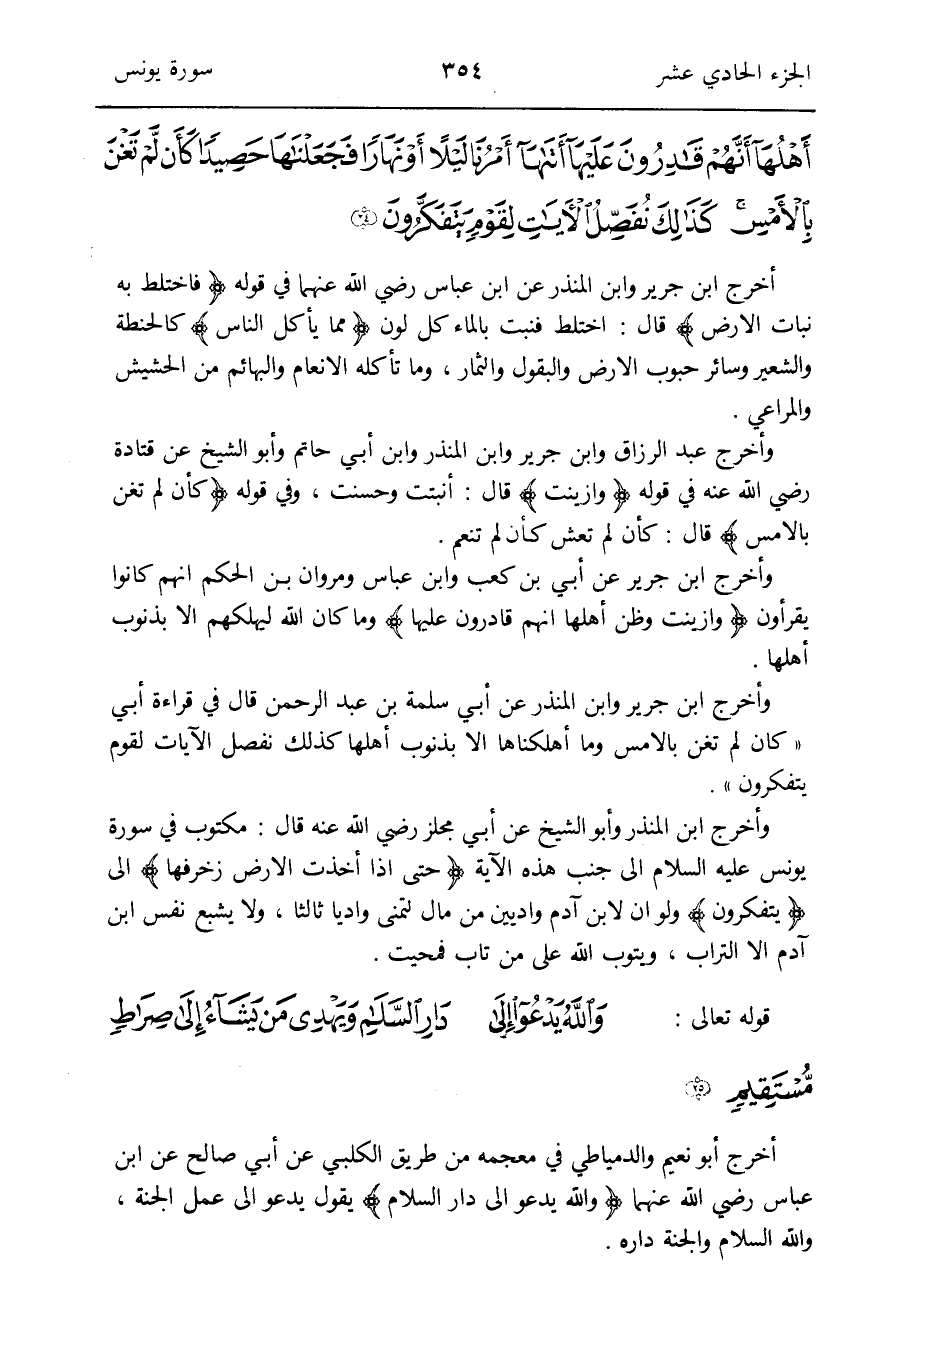 الجزء الحادي عشر ٣٥٤ سورة يونس
أَهْلُهَآ أَنَّهُمْ قَٰدِرُونَ عَلَيْهَآ أَتَىٰهَآ أَمْرُنَا لَيْلًا أَوْ نَهَارًا فَجَعَلْنَٰهَا حَصِيدًا كَأَن لَّمْ تَغْنَ
بِٱلْأَمْسِ ۚ كَذَٰلِكَ نُفَصِّلُ ٱلْأٓيَٰتِ لِقَوْمٍ يَتَفَكَّرُونَ ﴿٢٤﴾
أخرج ابن جرير وابن المنذر عن ابن عباس رضي الله عنهما في قوله ﴿ فاختلط به
نبات الارض ﴾ قال : اختلط فنبت بالماء كل لون ﴿ مما يأكل الناس ﴾ كالحنطة
والشعير وسائر حبوب الارض والبقول والثمار ، وما تأكله الانعام والبهائم من الحشيش
والمراعي .
وأخرج عبد الرزاق وابن جرير وابن المنذر وابن أبي حاتم وأبو الشيخ عن قتادة
رضي الله عنه في قوله ﴿ وازينت ﴾ قال : أنبتت وحسنت ، وفي قوله ﴿ كأن لم تغن
بالامس ﴾ قال : كأن لم تعش كأن لم تنعم .
وأخرج ابن جرير عن أبي بن كعب وابن عباس ومروان بن الحكم انهم كانوا
يقرأون ﴿ وازينت وظن أهلها انهم قادرون عليها ﴾ وما كان الله ليهلكهم الا بذنوب
أهلها .
وأخرج ابن جرير وابن المنذر عن أبي سلمة بن عبد الرحمن قال في قراءة أبي
« كان لم تغن بالامس وما أهلكناها الا بذنوب أهلها كذلك نفصل الآيات لقوم
يتفكرون » .
وأخرج ابن المنذر وأبو الشيخ عن أبي مجلز رضي الله عنه قال : مكتوب في سورة
يونس عليه السلام الى جنب هذه الآية ﴿ حتى اذا أخذت الارض زخرفها ﴾ الى
﴿ يتفكرون ﴾ ولو ان لابن آدم واديين من مال لتمنى واديا ثالثا ، ولا يشبع نفس ابن
آدم الا التراب ، ويتوب الله على من تاب فمحيت .
قوله تعالى : وَٱللَّهُ يَدْعُوٓا۟ إِلَىٰ دَارِ ٱلسَّلَٰمِ وَيَهْدِى مَن يَشَآءُ إِلَىٰ صِرَٰطٍ
مُّسْتَقِيمٍ ﴿٢٥﴾
أخرج أبو نعيم والدمياطي في معجمه من طريق الكلبي عن أبي صالح عن ابن
عباس رضي الله عنهما ﴿ والله يدعو الى دار السلام ﴾ يقول يدعو الى عمل الجنة ،
والله السلام والجنة داره .